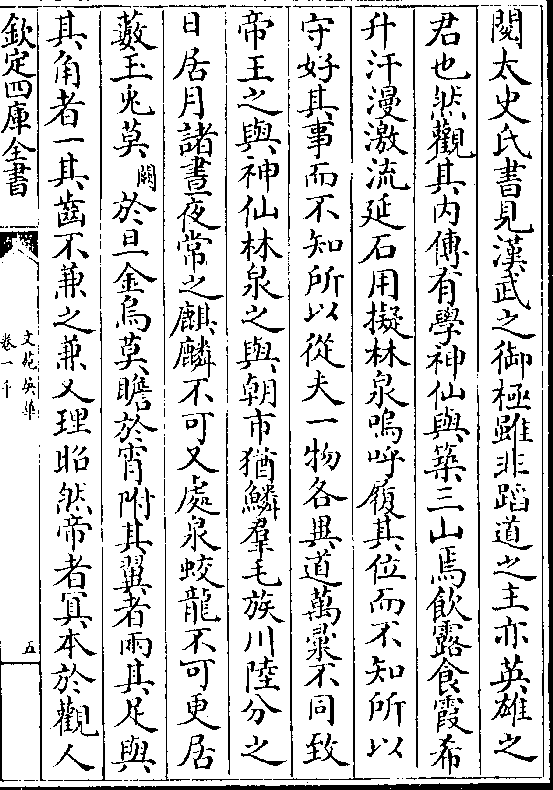 閱太史氏書見漢武之御極雖非蹈道之主亦英雄之
君也然觀其内傳有學神仙與築三山焉飲露食霞希
升汗漫激流延石用擬林泉嗚呼履其位而不知所以
守好其事而不知所以從夫一物各異道萬彚不同致
帝王之與神仙林泉之與朝市猶鱗羣毛族川陸分之
日居月諸晝夜常之麒麟不可又處泉蛟龍不可更居
藪玉兔莫闕於旦金烏莫瞻於宵附其翼者兩其足與
其角者一其齒不兼之兼又理昭然帝者寘本於觀人
欽定四庫全書
文苑英華
卷一千
五